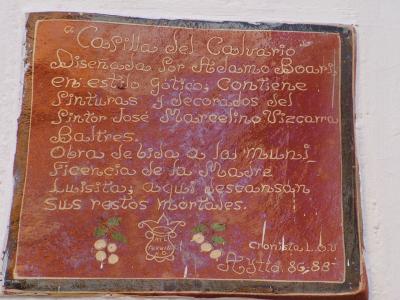 "Capilla del Calvario
Diseñada por Adamo Boari
en estilo gotico; Contiene
Pinturas y decorados del
Pintor José Marcelino Vizcarra
Baltres.
Obra debida a la muni_
ficencia de la Madre
Luisita; aqui descansan
sus restos mortales.
Cronista L.G.V
Aytto. 86,88